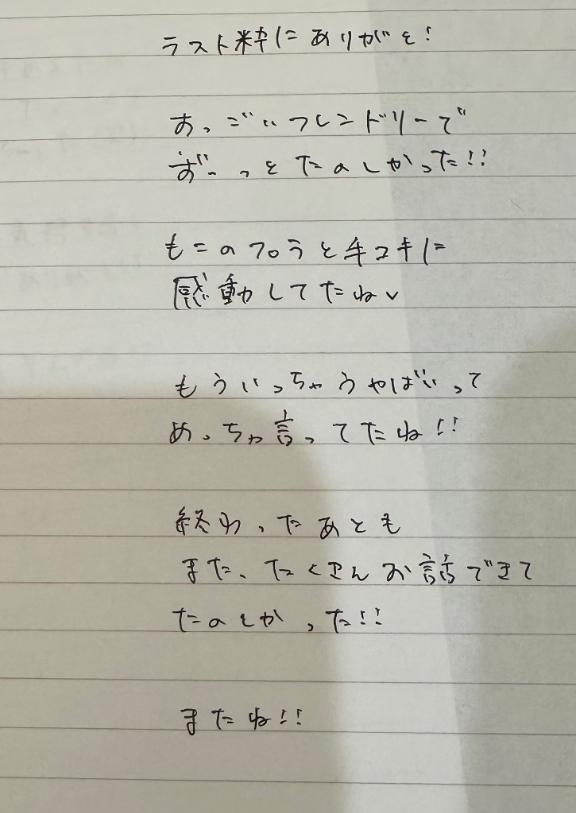 ラスト枠にありがと!
すっごいフレンドリーで
ずーっとたのしかった!!
もこのフロうとキコキに
感動してたね
もういっちゃうやばいって
めっちゃ言ってたね!!
終わったあとも
また、たくさんお話できて
たのしかった!!
またね!!